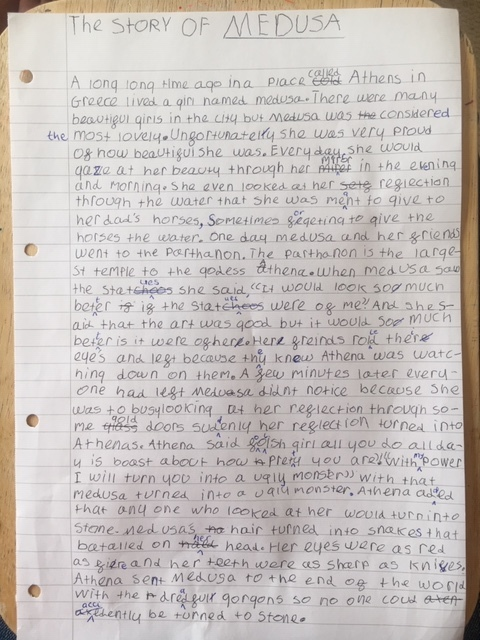 The STORY OF MEDUSA
A long long time ago in a place called Athens in
Greece lived a girl named medusa. There were many
beautiful girls in the city but Medusa was the considered
the most lovely. Unfortunatelly she was very proud
of how beautiful she was. Every day she would
gaze at her beauty through her mirrer in the evening
and morning. She even looked at her reflection
through the water that she was ment to give to
her dad's horses, Sometimes forgeting to give the
horses the water. One day medusa and her friends
went to the Parthanon. The Parthanon is the large-
st temple to the godess Athena. When medusa saw
the statues she said, "It would look so much
beter if the statues were of me" And she s-
aid that the art was good but it would so MUCH
beter is it were of here. Her freinds rold there
eyes and left because they knew Athena was watc-
hing down on them. A few minutes later every-
one had left Medusa didnt notice because she
was to busy looking at her reflection through so-
me gold doors suddenly her reflection turned into
Athenas. Athena said foolish girl all you do all da-
y is boast about how prety you are!" "With my power
I will turn you into a ugly monster" with that
medusa turned into a ugly monster. Athena added
that any one who looked at her would turn into
Stone. medusa's hair turned into snakes that
batalled on her head. Her eyes were as red
as fire and her teeth were as sharp as knifes.
Athena sent Medusa to the end of the world
with the dreadfull gorgons so no one coud
accidently be turned to stone.